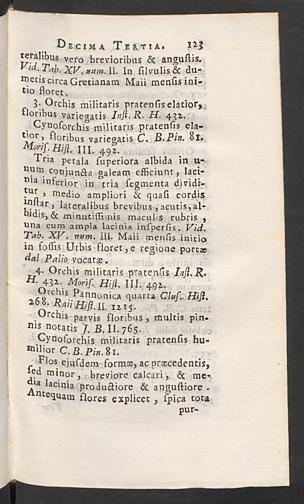 DECIMA TERTIA. 123
teralibus vero brevioribus & angustis.
Vid. Tab. XV. num. II. In silvulis & du-
metis circa Gretianam Maii mensis ini-
tio floret.
3. Orchis militaris pratensis elatior,
floribus variegatis Inst. R. H. 432.
Cynosorchis militaris pratensis ela-
tior, floribus variegatis C. B. Pin. 81.
Moris. Hist. III. 492.
Tria petala superiora albida in u-
num conjuncta galeam efficiunt, laci-
nia inferior in tria segmenta dividi-
tur, medio ampliori & quasi cordis
instar, lateralibus brevibus, acutis, al-
bidis, & minutissimis maculis rubris,
una cum ampla lacinia inspersis. Vid.
Tab. XV. num. III. Maii mensis initio
in fossis Urbis floret, e regione portæ
dal Palio vocatæ.
4. Orchis militaris pratensis Inst. R.
H. 432. Moris. Hist. III. 492.
Orchis Pannonica quarta Clus. Hist.
268. Raii Hist. II. 1215.
Orchis parvis floribus, multis pin-
nis notatis J. B. II. 765.
Cynosorchis militaris pratensis hu-
milior C. B. Pin. 81.
Flos ejusdem formæ, ac præcedentis,
sed minor, breviore calcari, & me-
dia lacinia productiore & angustiore.
Antequam flores explicet, spica tota
pur-